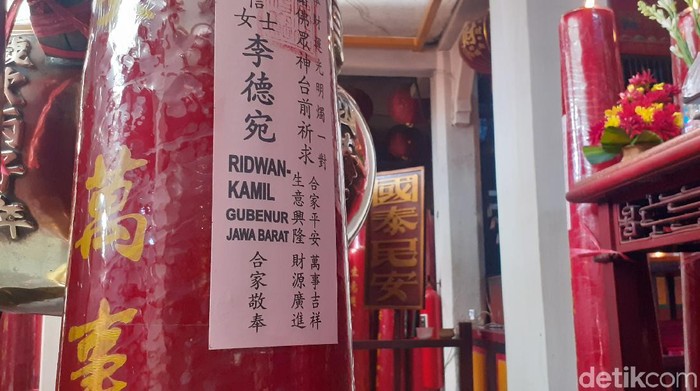 光明燭一對
合家平安 萬事吉祥
佛眾神台前祈求
生意興隆 財源廣進
信士
女
李德宛
RIDWAN-
KAMIL
GUBENUR
JAWA BARAT
合家敬奉
萬事
國泰民安
detikcom